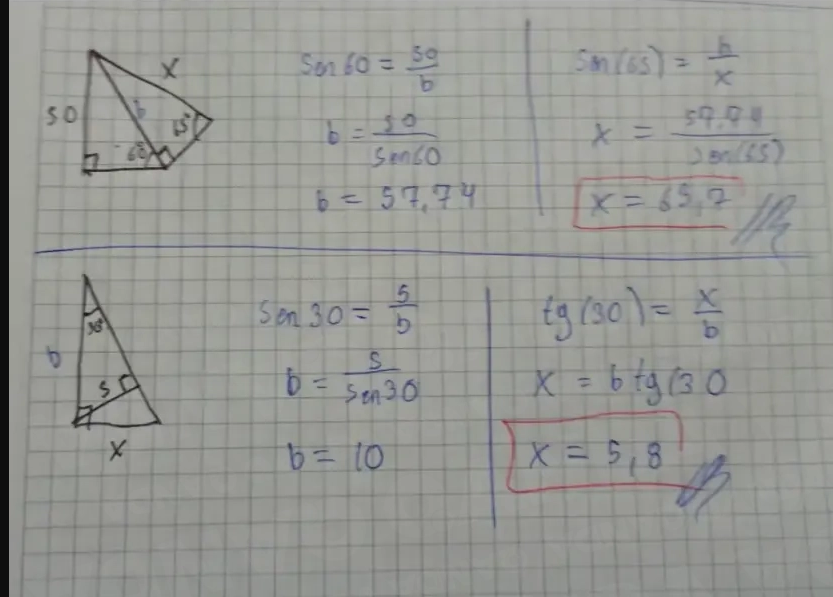 x
50
b
65°
60
Sen 60 = 50/b
b = 50/Sen60
b = 57,74
Sen(65) = b/x
x = 57,74/Sen(65)
x = 65,7
30°
b
5
x
Sen 30 = 5/b
b = 5/Sen30
b = 10
tg(30) = x/b
x = b tg(30
x = 5,8